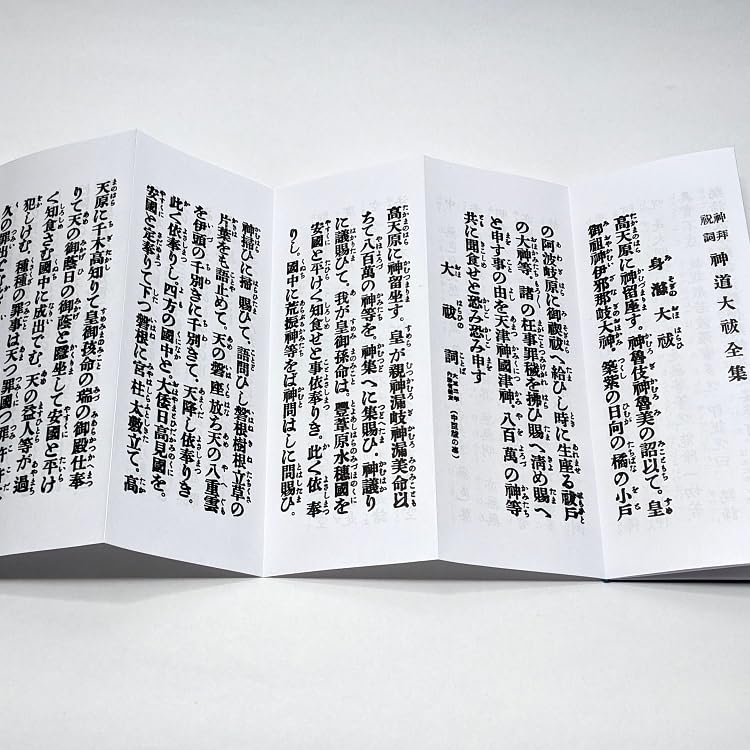 神拜祝詞 神道大祓全集
身滌大祓
高天原に神留座す。神魯伎神魯美の詔以て。皇
御祖神伊邪那岐大神。築紫の日向の橘の小戸
の阿波岐原に御禊祓へ給ひし時に生座る祓戸
の大神等。諸の枉事罪穢を拂ひ賜へ淸め賜へ
と申す事の由を天津神國津神。八百萬の神等
共に聞食せと恐み恐み申す
大祓詞 (中臣祓の事)
高天原に神留坐す。皇が親神漏岐神漏美命以
ちて八百萬の神等を。神集へに集賜ひ。神議り
に議賜ひて。我が皇御孫命は。豐葦原水穗國を
安國と平けく知食せと事依奉りき。此く依奉
りし。國中に荒振神等をは神問はしに問賜ひ。
神掃ひに掃賜ひて。語問ひし磐根樹根立草の
片葉をも語止めて。天の磐座放ち天の八重雲
を伊頭の千別きに千別きて。天降し依奉りき。
此く依奉りし四方の國中と。大倭日高見國を。
安國と定奉りて下つ磐根に宮柱太敷立て。高
天原に千木高知りて皇御孫命の瑞の御殿仕奉
りて天の御蔭日の御蔭と隱坐して安國と平け
く知食さむ國中に成出でむ。天の益人等が過
犯しけむ。種種の罪事は天つ罪國つ罪許
久の罪出でむ